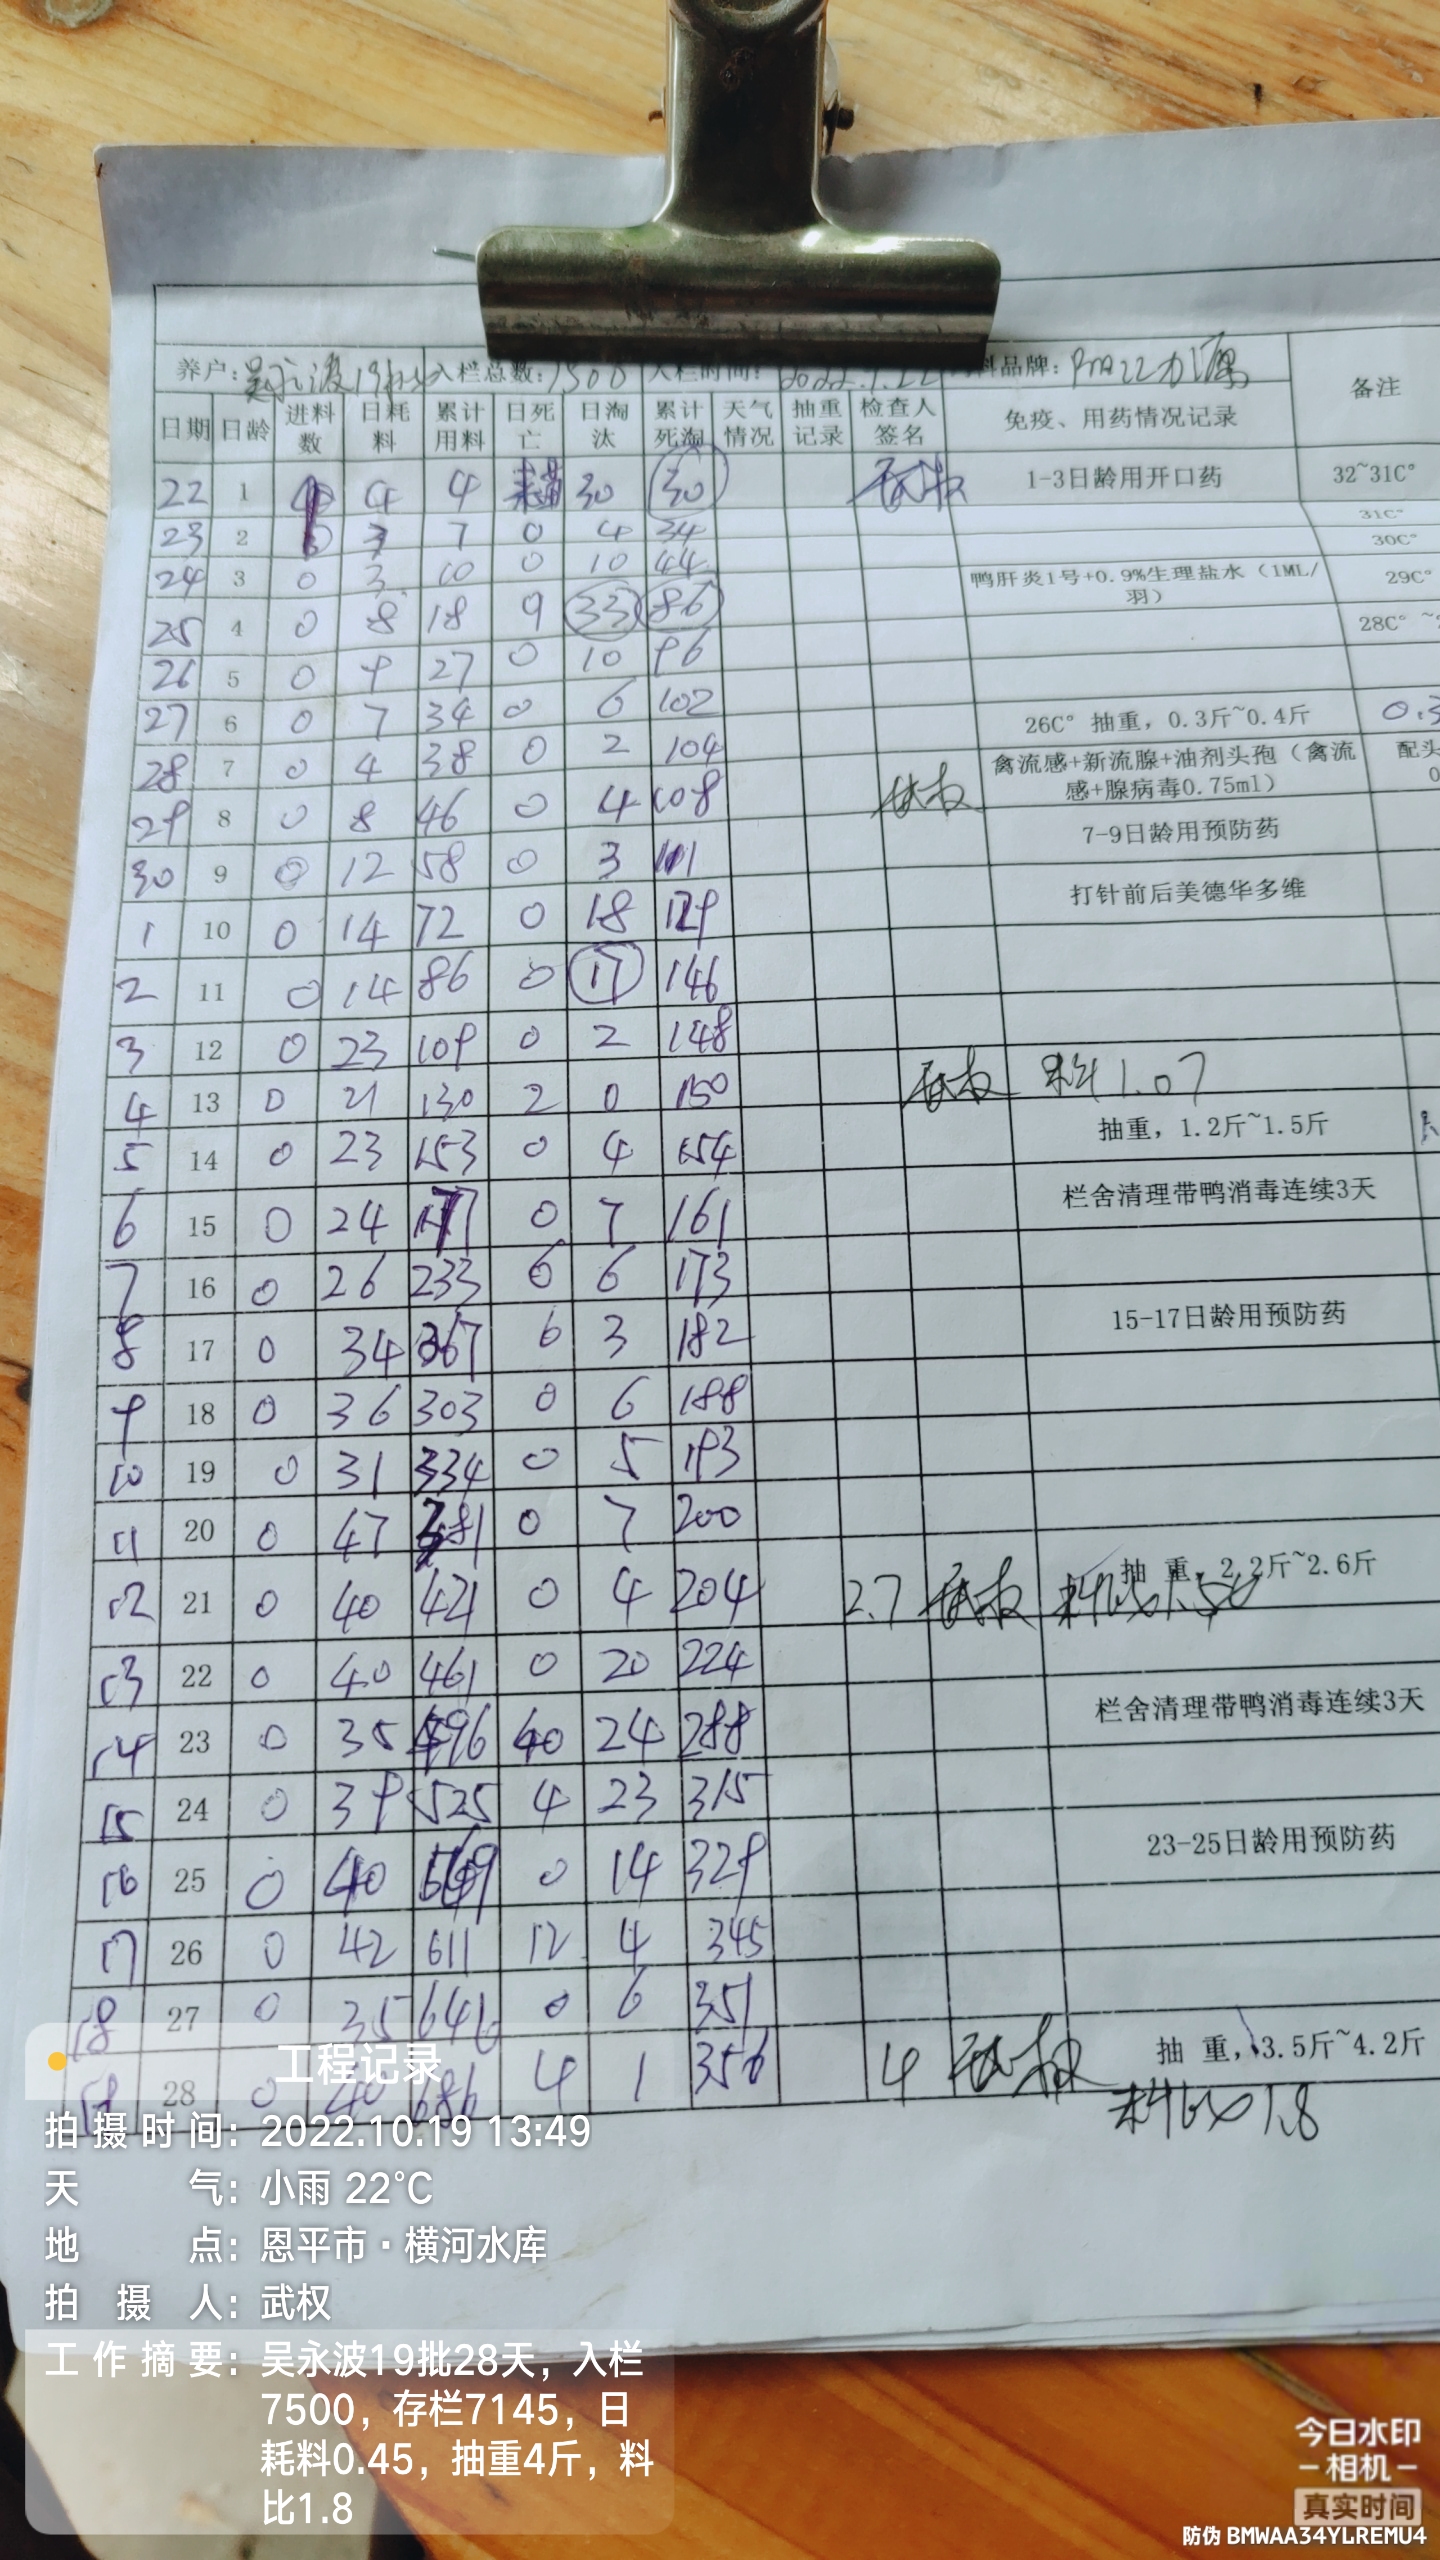 养户:吴永波19批 入栏总数:7500 入栏时间: 2022.9.22 料品牌: 备注
日期 日龄 进料数 日耗料 累计用料 日死亡 日淘汰 累计死淘 天气情况 抽重记录 检查人签名 免疫、用药情况记录
22 1 4 4 30 30 武权 1-3日龄用开口药 32~31C°
23 2 0 3 7 0 4 34 31C°
30C°
24 3 0 3 10 0 10 44 鸭肝炎1号+0.9%生理盐水（1ML/羽） 29C°
25 4 0 8 18 9 33 86 28C°
26 5 0 9 27 0 10 96
27 6 0 7 34 0 6 102 26C°抽重，0.3斤~0.4斤
28 7 0 4 38 0 2 104 禽流感+新流腺+油剂头孢（禽流感+腺病毒0.75ml） 配头
29 8 0 8 46 0 4 108 武权 7-9日龄用预防药
30 9 0 12 58 0 3 打针前后美德华多维
1 10 0 14 72 0 18 129
2 11 0 14 86 0 17 146
3 12 0 23 109 0 2 148
4 13 0 21 130 2 0 150 武权 料1.07
5 14 0 23 153 0 4 154 抽重，1.2斤~1.5斤
6 15 0 24 177 0 7 161 栏舍清理带鸭消毒连续3天
7 16 0 26 233 6 6 173
8 17 0 34 6 3 182 15-17日龄用预防药
9 18 0 36 303 0 6 188
10 19 0 31 334 0 5 193
11 20 0 47 381 0 7 200
12 21 0 40 421 0 4 204 2.7 武权 抽 重，2.2斤~2.6斤
13 22 0 40 461 0 20 224
14 23 0 35 496 40 24 288 栏舍清理带鸭消毒连续3天
15 24 0 39 525 4 23 315
16 25 0 40 569 0 14 329 23-25日龄用预防药
17 26 0 42 611 12 4 345
18 27 0 35 646 0 6 351
19 28 0 40 686 4 1 356 4 武权 抽 重，3.5斤~4.2斤
料比1.8
工程记录
拍摄时间：2022.10.19 13:49
天气：小雨 22℃
地点：恩平市·横河水库
拍摄人：武权
工作摘要：吴永波19批28天，入栏
7500，存栏7145，日
耗料0.45，抽重4斤，料
比1.8
今日水印
相机
真实时间
防伪 BMWAA34YLREMU4